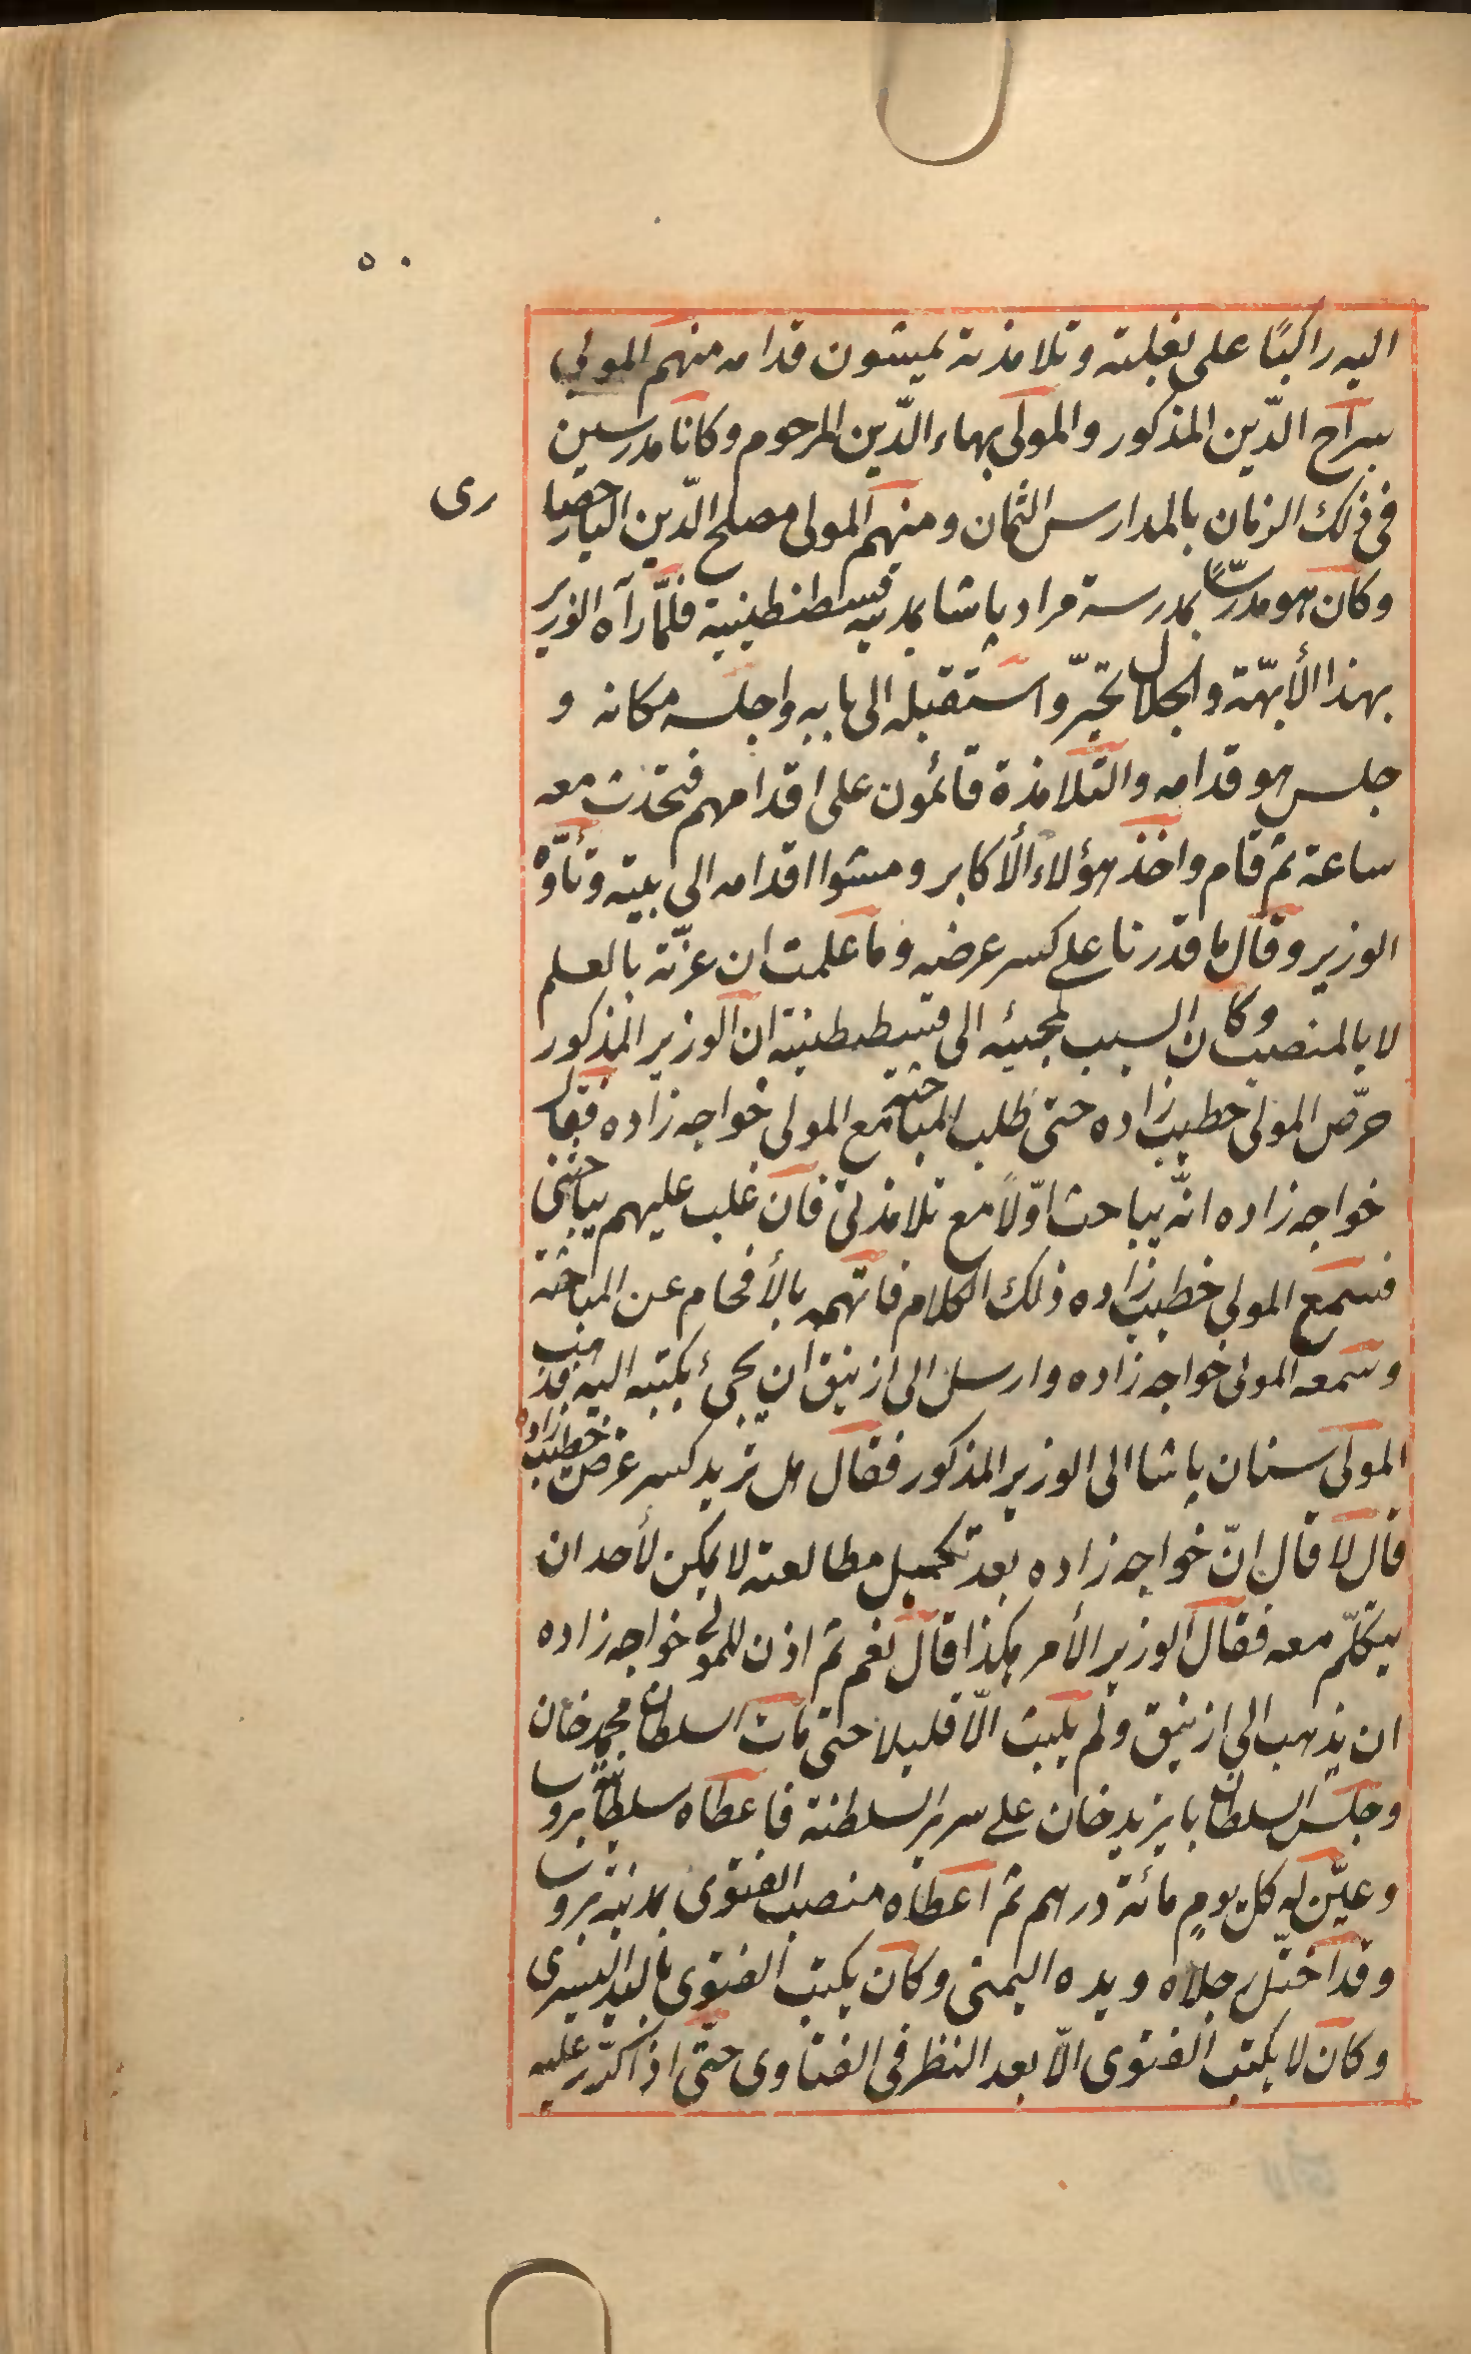 ٥٠
اليه راكبًا على بغلته وتلامذته يمشون قدامه منهم المولى
سراج الدّين المذكور والمولى بهاء الدّين المرحوم وكانا مدرسين
فى ذلك الزمان بالمدارس الثمان ومنهم المولى مصلح الدّين اليارحصا
رى
وكان هو مدرسًا بمدرسة مراد پاشا بمدينه قسطنطينية فلمّا رآه الوزير
بهذا الأبهّة والجلال تحيرّ واستقبله الى بابه واجلسه مكانه و
جلس هو قدامه والتلامذة قائمون على اقدامهم فتحدث معه
ساعة ثم قام واخذ هؤلاء الأكابر ومشوا اقدامه الى بيته وتأوّه
الوزير وقال ما قدرنا على كسر عرضه وما علمت ان عزّته بالعلم
لا بالمنصب وكان السبب لمجيئه الى قسطنطنية ان الوزير المذكور
حرّض المولى خطيب زاده حتى طلب المباحثة مع المولى خواجه زاده فقال
خواجه زاده انّه يباحث اوّلاً مع تلامذتى فان غلب عليهم يباحثنى
فسمع المولى خطيب زاده ذلك الكلام فاتهمه بالأفحام عن المباحثة
وسمعه المولى خواجه زاده وارسل الى ازنيق ان يجئ بكتبه اليه فذهب
المولى سنان پاشا الى الوزير المذكور فقال هل تريد كسر عرض خطيب زاده
قال لا قال انّ خواجه زاده بعد تكميل مطالعته لا يمكن لأحد ان
يتكلّم معه فقال الوزير الأمر هكذا قال نعم ثم اذن للمولى خواجه زاده
ان يذهب الى ازنيق ولم يلبث الّا قليلا حتى مات السلطان محمد خان
وجلس السلطان بايزيد خان على سرير السلطنة فاعطاه سلطانية بروسا
وعيّن له كل يوم مائة درهم ثم اعطاه منصب الفتوى بمدينة بروسا
وقد اختلّ رجلاه ويده اليمنى وكان يكتب الفتوى باليد اليسرى
وكان لا يكتب الفتوى الّا بعد النظر فى الفتاوى حتّى اذا كرّر عليه